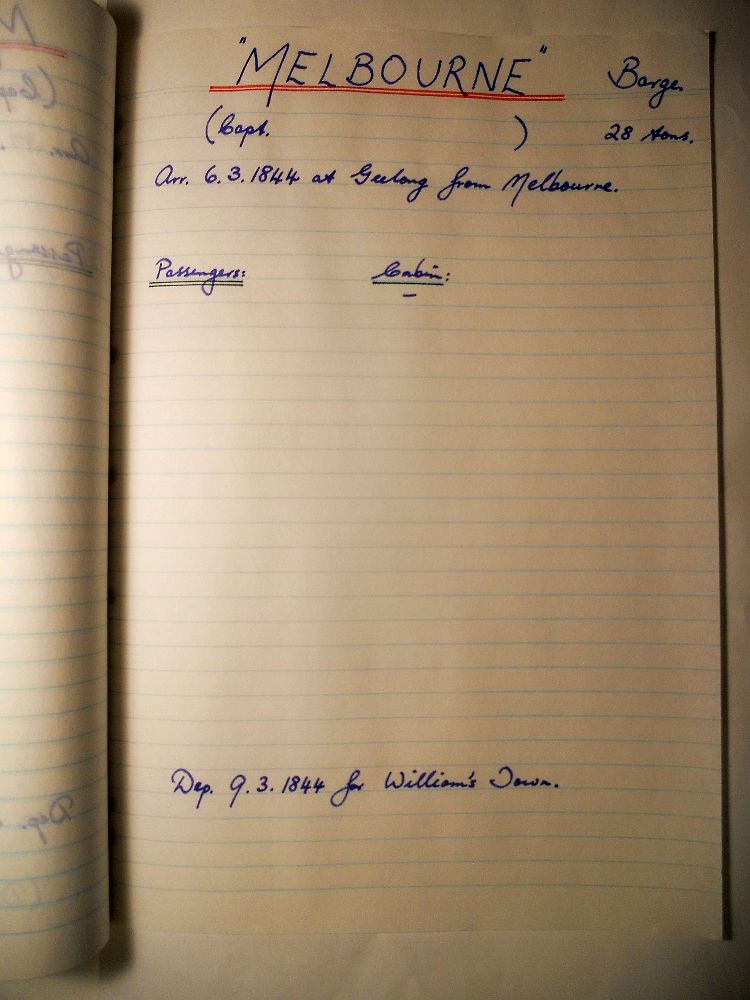 "MELBOURNE" Barge.
(Capt. ) 28 tons.
Arr. 6.3.1844 at Geelong from Melbourne.
Passengers: Cabin:
–
Dep. 9.3.1844 for William's Town.